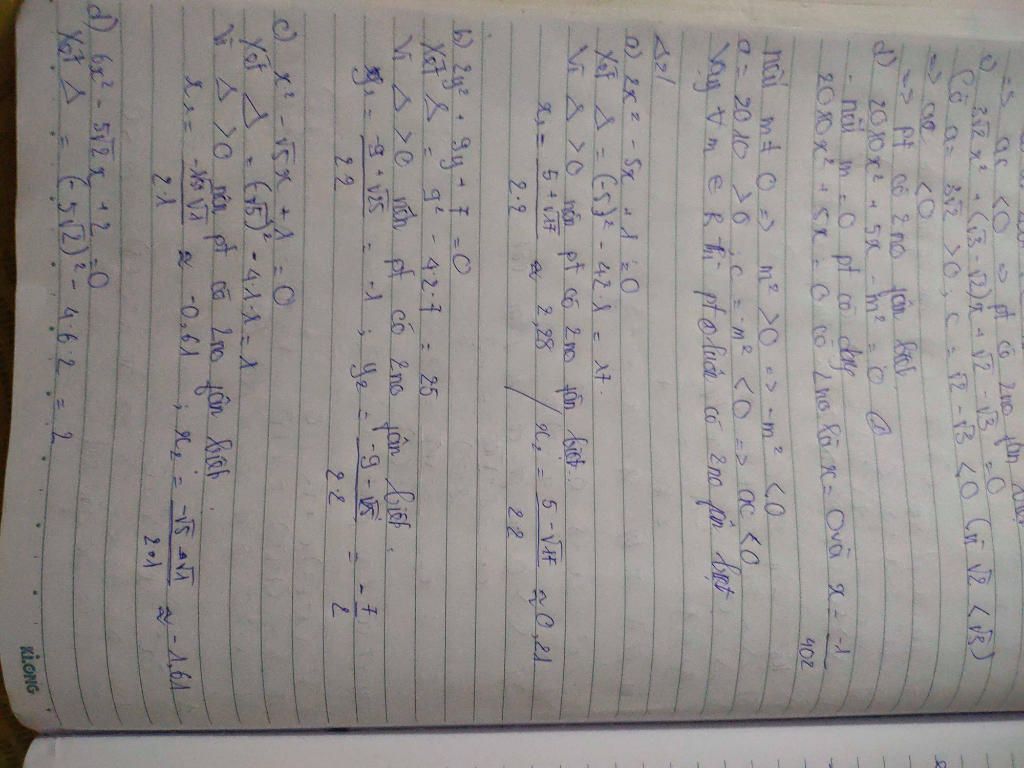 => ac < 0 => pt có 2 no fân biệt
c) 3√2x² + (√3 - √2)x + √2 - √3 = 0
Có a = 3√2 > 0, c = √2 - √3 < 0 (vì √2 < √3)
=> ac < 0
=> pt có 2 no fân biệt
d) 2010x² + 5x - m² = 0
- nếu m = 0 pt có dạng
2010x² + 5x = 0 có 2 no là x = 0 và x = -1/402
nếu m ≠ 0 => m² > 0 => -m² < 0
a = 2010 > 0; c = -m² < 0 => ac < 0
Vậy ∀ m ∈ R thì pt luôn có 2 no fân biệt
a) 2x² - 5x + 1 = 0
Xét Δ = (-5)² - 4.2.1 = 17
Vì Δ > 0 nên pt có 2 no fân biệt
x₁ = (5 + √17)/2.2 ≈ 2,28 / x₂ = (5 - √17)/2.2 ≈ 0,21
b) 2y² + 9y + 7 = 0
Xét Δ = 9² - 4.2.7 = 25
Vì Δ > 0 nên pt có 2 no fân biệt.
y₁ = (-9 + √25)/2.2 = -1; y₂ = (-9 - √25)/2.2 = -7/2
c) x² - √5x + 1 = 0
Xét Δ = (√5)² - 4.1.1 = 1
Vì Δ > 0 nên pt có 2 no fân biệt
x₁ = √1/2.1 ≈ -0,61; x₂ = (-√5 - √1)/2.1 ≈ -1,61
d) 6x² - 5√2x + 2 = 0
Xét Δ = (-5√2)² - 4.6.2 = 2
KLONG